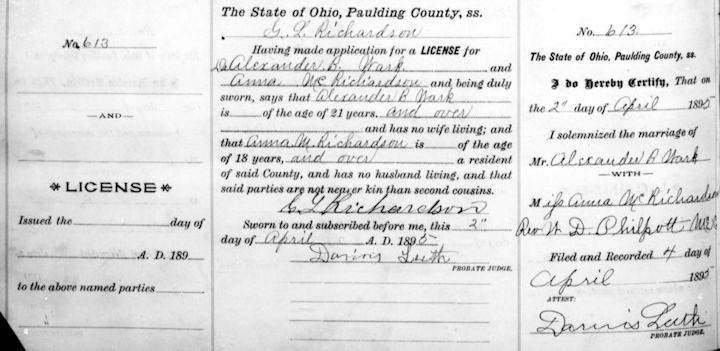 No. 613
AND
LICENSE
Issued the day of
A. D. 189
to the above named parties
The State of Ohio, Paulding County, ss.
Richardson
Having made application for a LICENSE for
Alexander B. Wark and
Anna Mc Richardson and being duly
sworn, says that Alexander B Wark
is of the age of 21 years. and over
and has no wife living; and
that Anna M Richardson is of the age
of 18 years, and over a resident
of said County, and has no husband living, and that
said parties are not nearer kin than second cousins.
Richardson
Sworn to and subscribed before me, this 2"
day of April A. D. 1895
Leeth
PROBATE JUDGE.
No. 613
The State of Ohio, Paulding County, ss.
I do Hereby Certify, That on
the 2" day of April 1895
I solemnized the marriage of
Mr. Alexander B Wark
WITH
Miss Anna Mc Richardson
Rev W. D. Philpott
Filed and Recorded 4 day of
April 1895
ATTEST:
Leeth
PROBATE JUDGE.